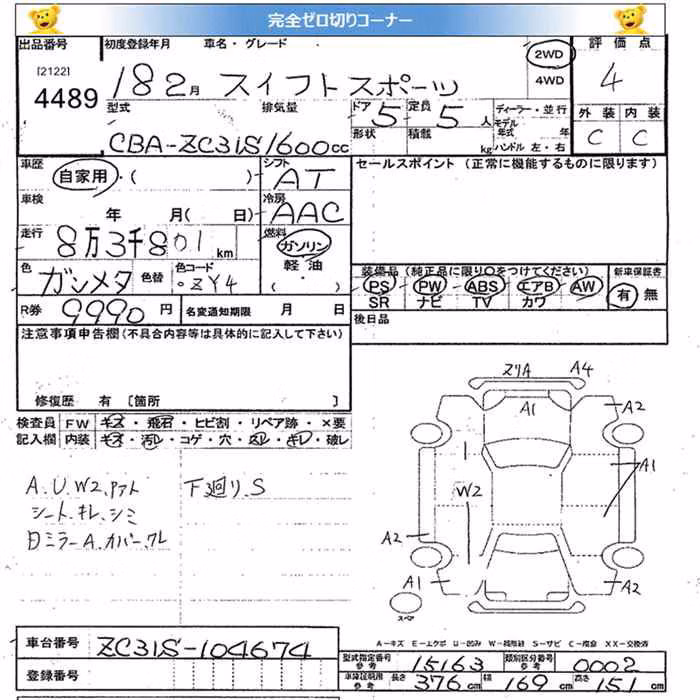 完全ゼロ切りコーナー
出品番号 初度登録年月 車名・グレード 2WD 評価点
[2122] 4489 18 2月 スイフトスポーツ 4WD 4
型式 排気量 ドア 5 定員 5人 ディーラー・並行 外装 内装
CBA-ZC31S 1600cc 形状 積載 kg モデル年式 年 ハンドル 左・右 C C
車歴 自家用・( ) シフト AT セールスポイント (正常に機能するものに限ります)
車検 年 月( 日) 冷房 AAC
走行 8万3千801km 燃料 ガソリン
色 ガンメタ 色替 色コード ZY4 軽油 ( ・ ) 装備品 (純正品に限り○をつけてください) 新車保証書
PS PW ABS エアB AW 有 無
SR ナビ TV カワ
R券 9990円 名変通知期限 月 日 後日品
注意事項申告欄(不具合内容等は具体的に記入して下さい)
修復歴 有 [箇所 ]
検査員 FW キズ・飛石・ヒビ割・リペア跡・×要
記入欄 内装 キズ・汚レ・コゲ・穴・スレ・キレ・破レ
A.U.W2.アト 下廻り.S
シート.キレ.シミ
ミラーA.カバーワレ
A4
A1 A2
A1
W2
A2
A1 A2
スペア
A-キズ E-エクボ U-凹み S-サビ XX-交換済
車台番号 ZC31S-104674 型式指定番号 参考 15163 類別区分番号 参考 0002
登録番号 車庫証明用 参考 長さ 376cm 幅 169cm 高さ 151cm